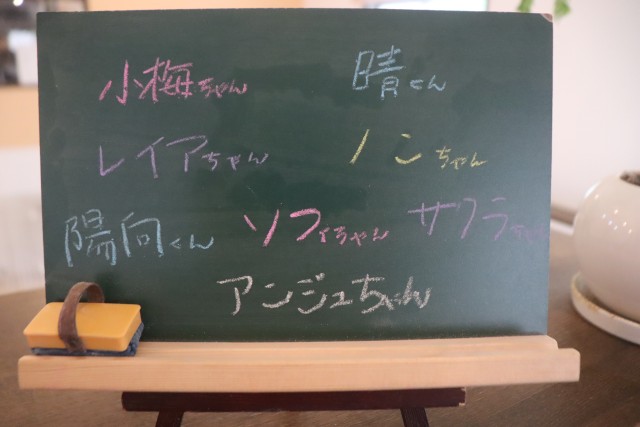 小梅ちゃん 晴くん
レイアちゃん ノンちゃん
陽向くん ソフィちゃん サクラちゃん
アンジュちゃん